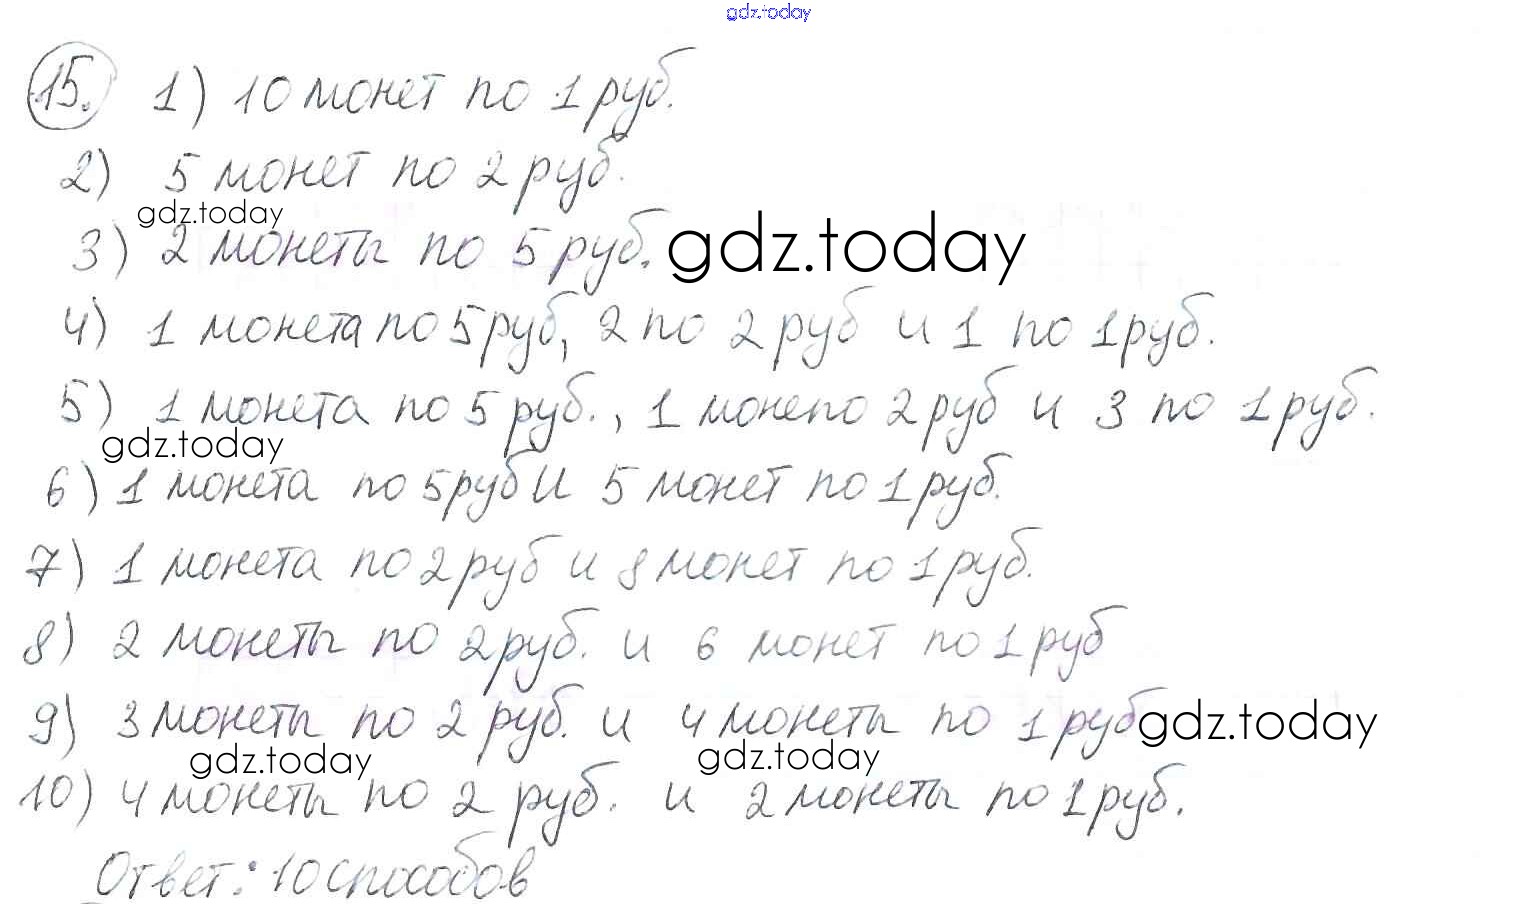 gdz.today
15. 1) 10 монет по 1 руб.
2) 5 монет по 2 руб.
gdz.today
3) 2 монеты по 5 руб. gdz.today
4) 1 монета по 5 руб, 2 по 2 руб и 1 по 1 руб.
5) 1 монета по 5 руб., 1 монепо 2 руб и 3 по 1 руб.
gdz.today
6) 1 монета по 5 руб и 5 монет по 1 руб.
7) 1 монета по 2 руб и 8 монет по 1 руб.
8) 2 монеты по 2 руб. и 6 монет по 1 руб
9) 3 монеты по 2 руб. и 4 монеты по 1 руб gdz.today
gdz.today gdz.today
10) 4 монеты по 2 руб. и 2 монеты по 1 руб.
Ответ: 10 способов